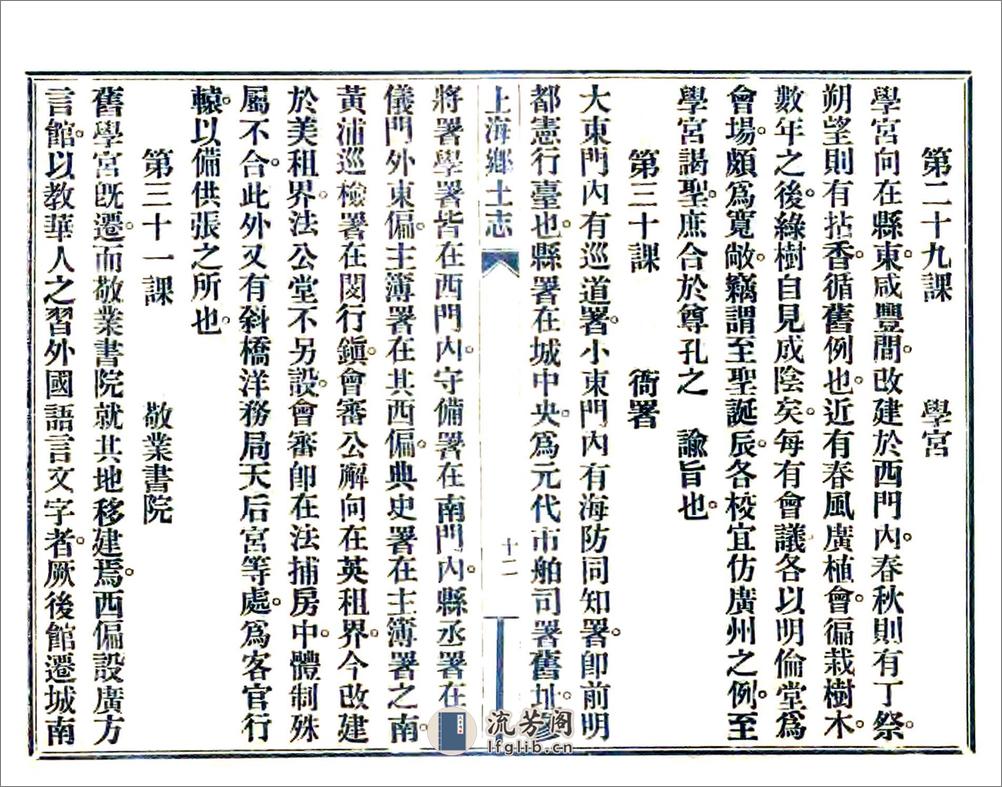 第二十九課　學宮
學宮向在縣東。咸豐間。改建於西門內。春秋則有丁祭。
朔望則有拈香。循舊例也。近有春風廣植會。徧栽樹木。
數年之後。綠樹自見成陰矣。每有會議。各以明倫堂爲
會場。頗爲寬敞。竊謂至聖誕辰。各校宜仿廣州之例。至
學宮謁聖。庶合於尊孔之　諭旨也。
第三十課　衙署
大東門內有巡道署。小東門內有海防同知署。卽前明
都憲行臺也。縣署在城中央。爲元代市舶司署舊址。參
上海鄉土志
十二
將署學署皆在西門內。守備署在南門內。縣丞署在
儀門外東偏。主簿署在其西偏。典史署在主簿署之南。
黃浦巡檢署在閔行鎭。會審公廨向在英租界。今改建
於美租界。法公堂不另設。會審卽在法捕房中。體制殊
屬不合。此外又有斜橋洋務局天后宮等處。爲客官行
轅。以備供張之所也。
第三十一課　敬業書院
舊學宮旣遷。而敬業書院就其地移建焉。西偏設廣方
言館。以教華人之習外國語言文字者。厥後館遷城南
流芳阁
lfglib.cn